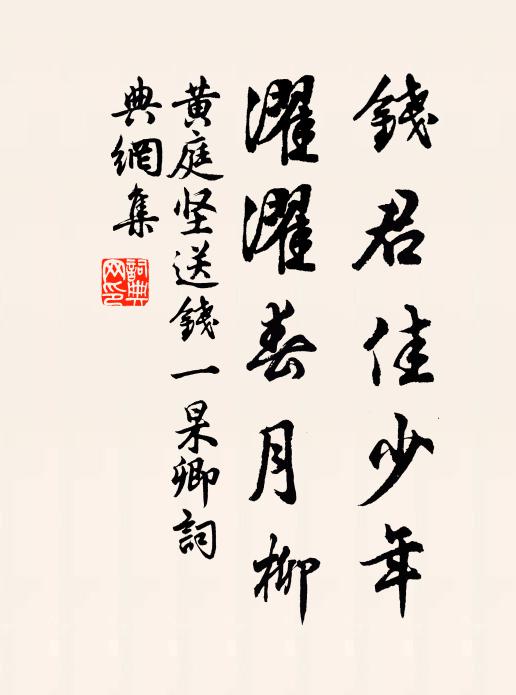 錢君佳少年
濯濯春月柳
黄庭坚送錢一杲卿詞
典網集
詞典網印